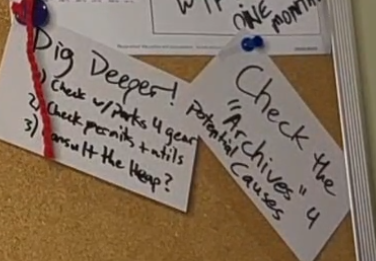 NINE
MONTHS
Dig Deeper!
1) Check w/ Parks 4 gear
2) Check permits + utils
3) Consult the Heap?
Check the
"Archives" 4
Potential
Causes